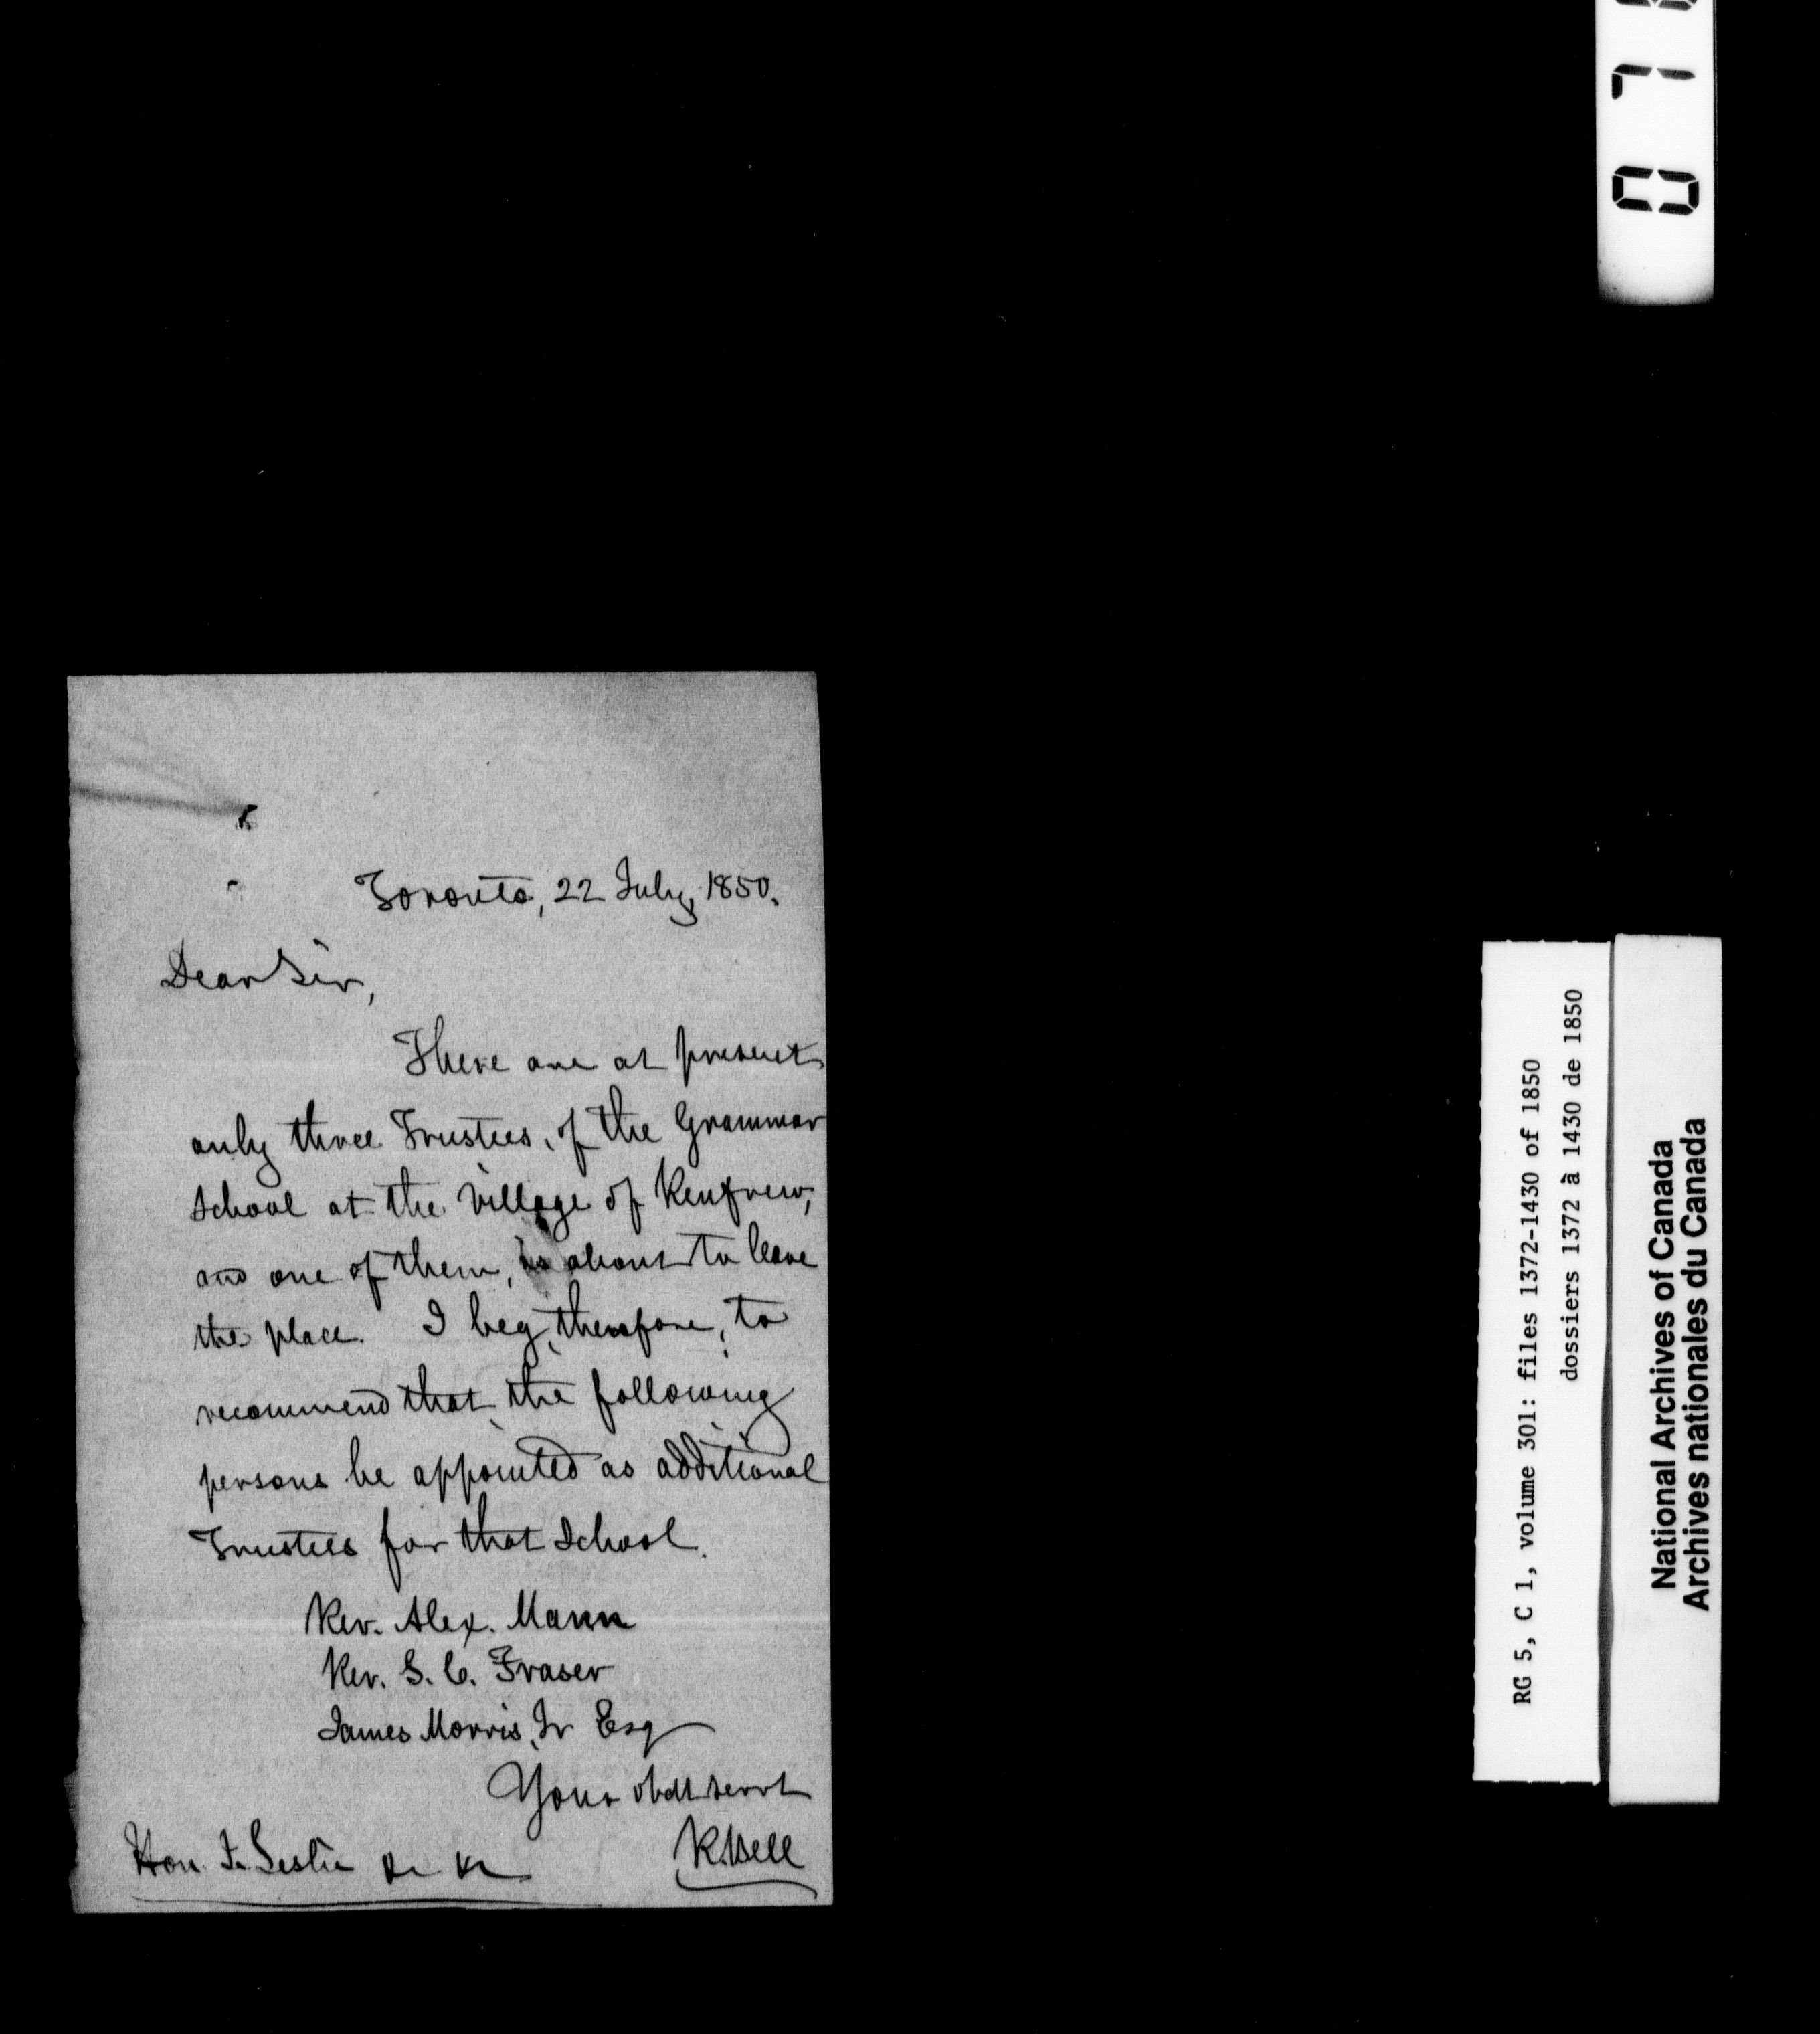 Toronto, 22 July, 1850.
Dear Sir,
There are at present
only three Trustees, of the Grammar
School at the Village of Renfrew,
and one of them, is about to leave
the place. I beg, therefore, to
recommend that the following
persons be appointed as additional
Trustees for that School.
Rev. Alex. Mann
Rev. S. C. Fraser
James Morris, Jr Esq
Your obdt servt
R. Bell
Hon. J. Leslie &c &c
0 7
RG 5, C 1, volume 301: files 1372-1430 of 1850
dossiers 1372 à 1430 de 1850
National Archives of Canada
Archives nationales du Canada